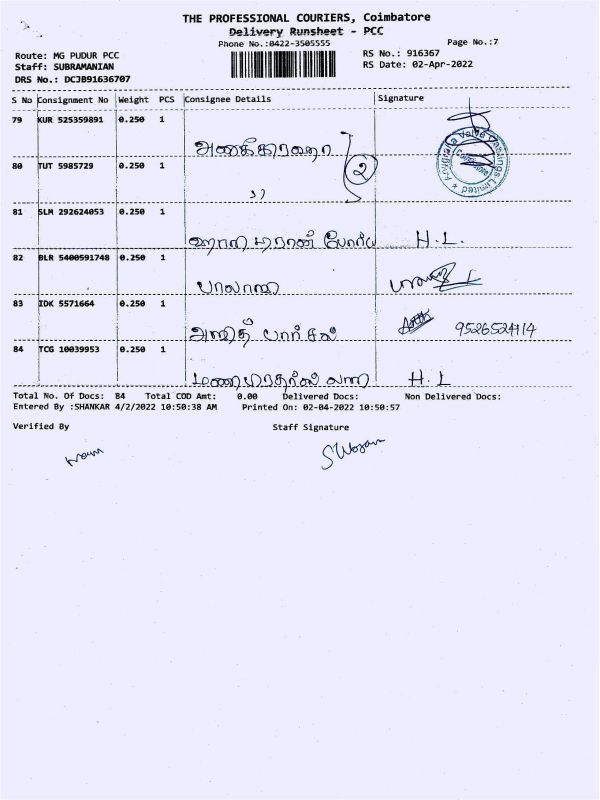 THE PROFESSIONAL COURIERS, Coimbatore
Delivery Runsheet - PCC
Phone No.:0422-3505555
Page No.:7
Route: MG PUDUR PCC
RS No.: 916367
Staff: SUBRAMANIAN
RS Date: 02-Apr-2022
DRS No.: DCJB91636707
S No Consignment No Weight PCS Consignee Details Signature
79 KUR 525359891 0.250 1
80 TUT 5985729 0.250 1
2
81 SLM 292624053 0.250 1
H.L.
82 BLR 5400591748 0.250 1
83 IDK 5571664 0.250 1
9526524114
84 TCG 10039953 0.250 1
H.L
Total No. Of Docs: 84 Total COD Amt: 0.00 Delivered Docs: Non Delivered Docs:
Entered By :SHANKAR 4/2/2022 10:50:38 AM Printed On: 02-04-2022 10:50:57
Verified By Staff Signature